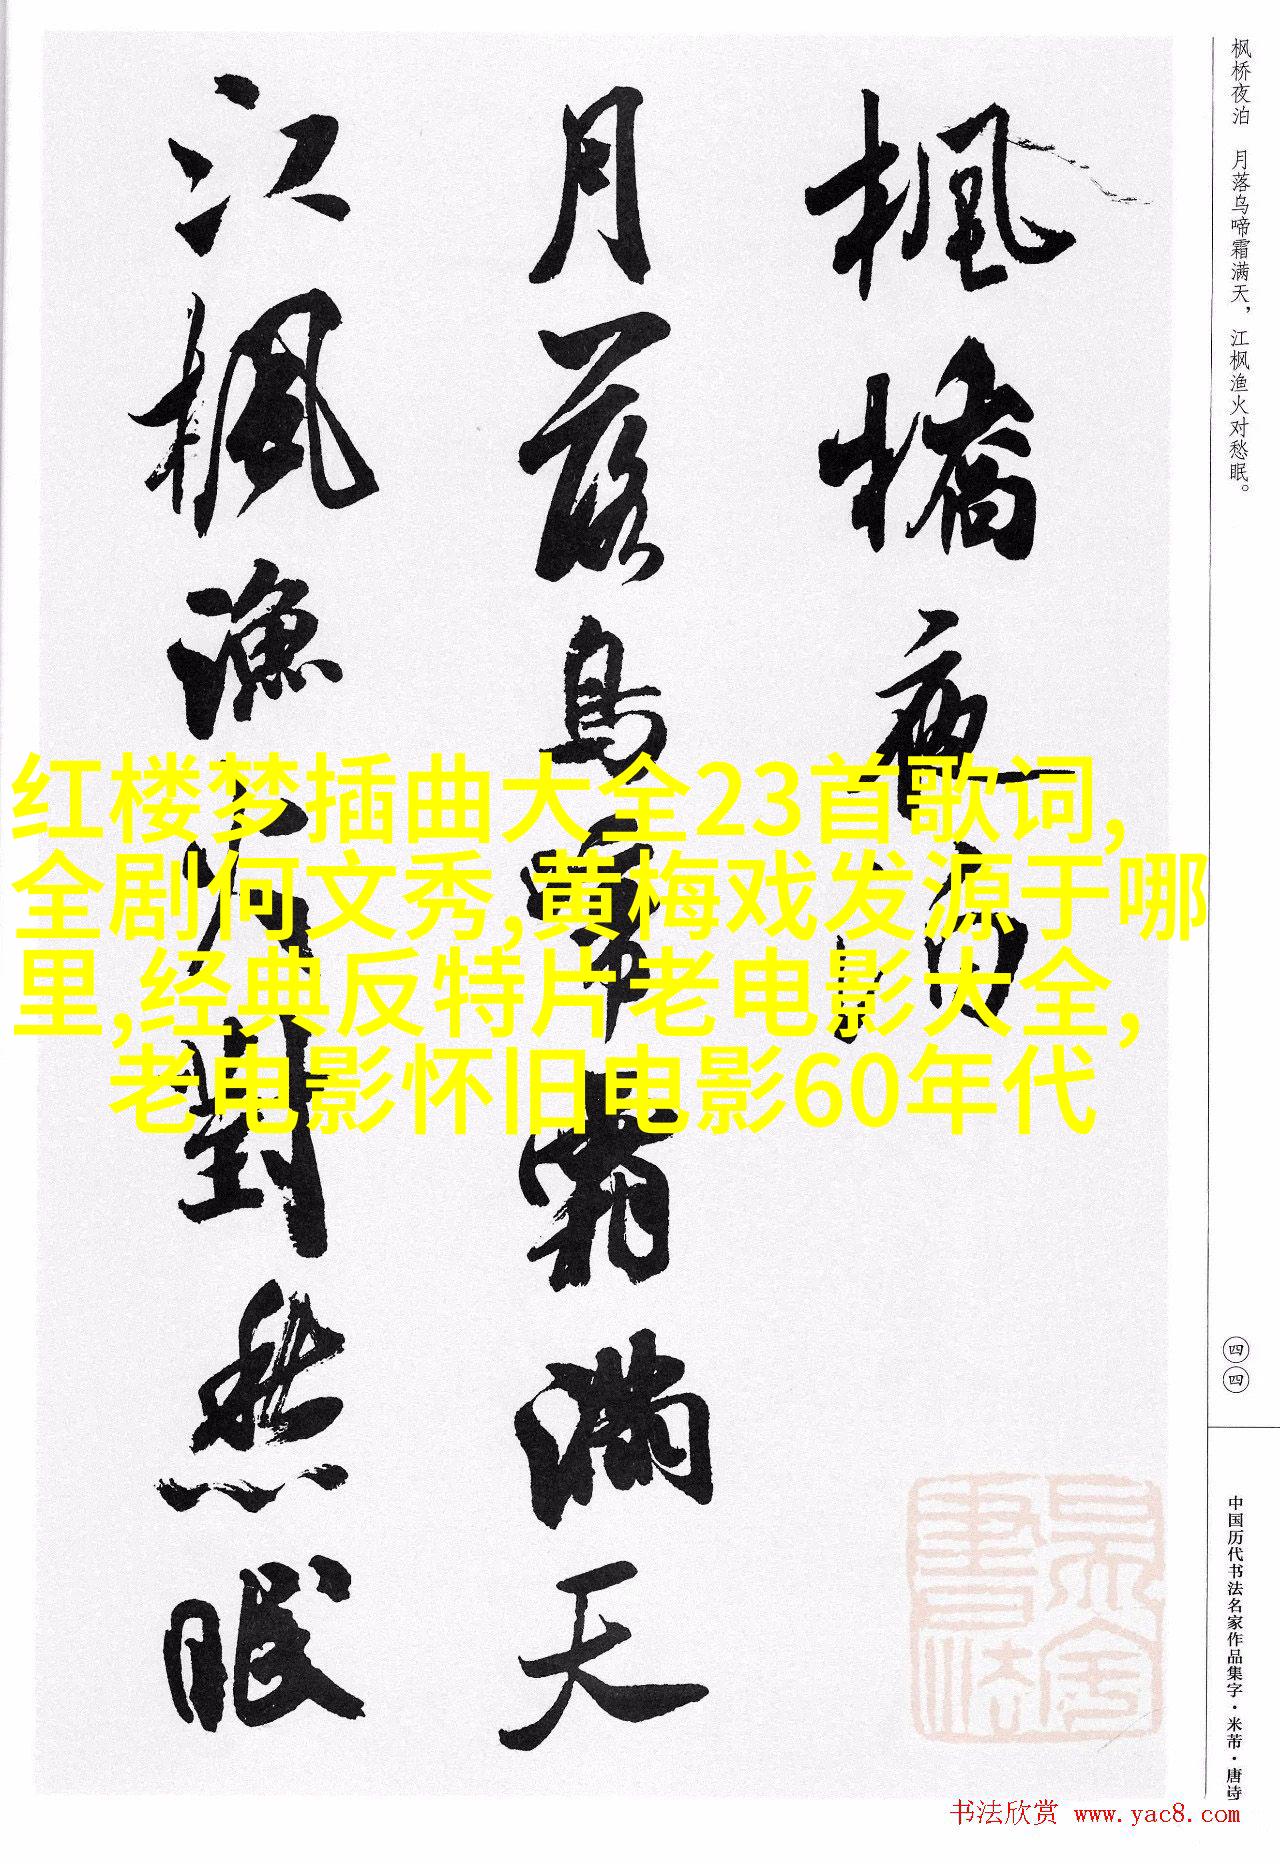 枫桥夜泊 月落乌啼霜满天，江枫渔火对愁眠。
四四
中国历代书法名家作品集字·米芾·唐诗
楓橋夜泊
月落烏啼霜滿天
江楓漁火對愁眠
红楼梦插曲大全23首歌词,
全剧何文秀,黄梅戏发源于哪
里,经典反特片老电影大全,
老电影怀旧电影60年代
书法欣赏 www.yac8.com